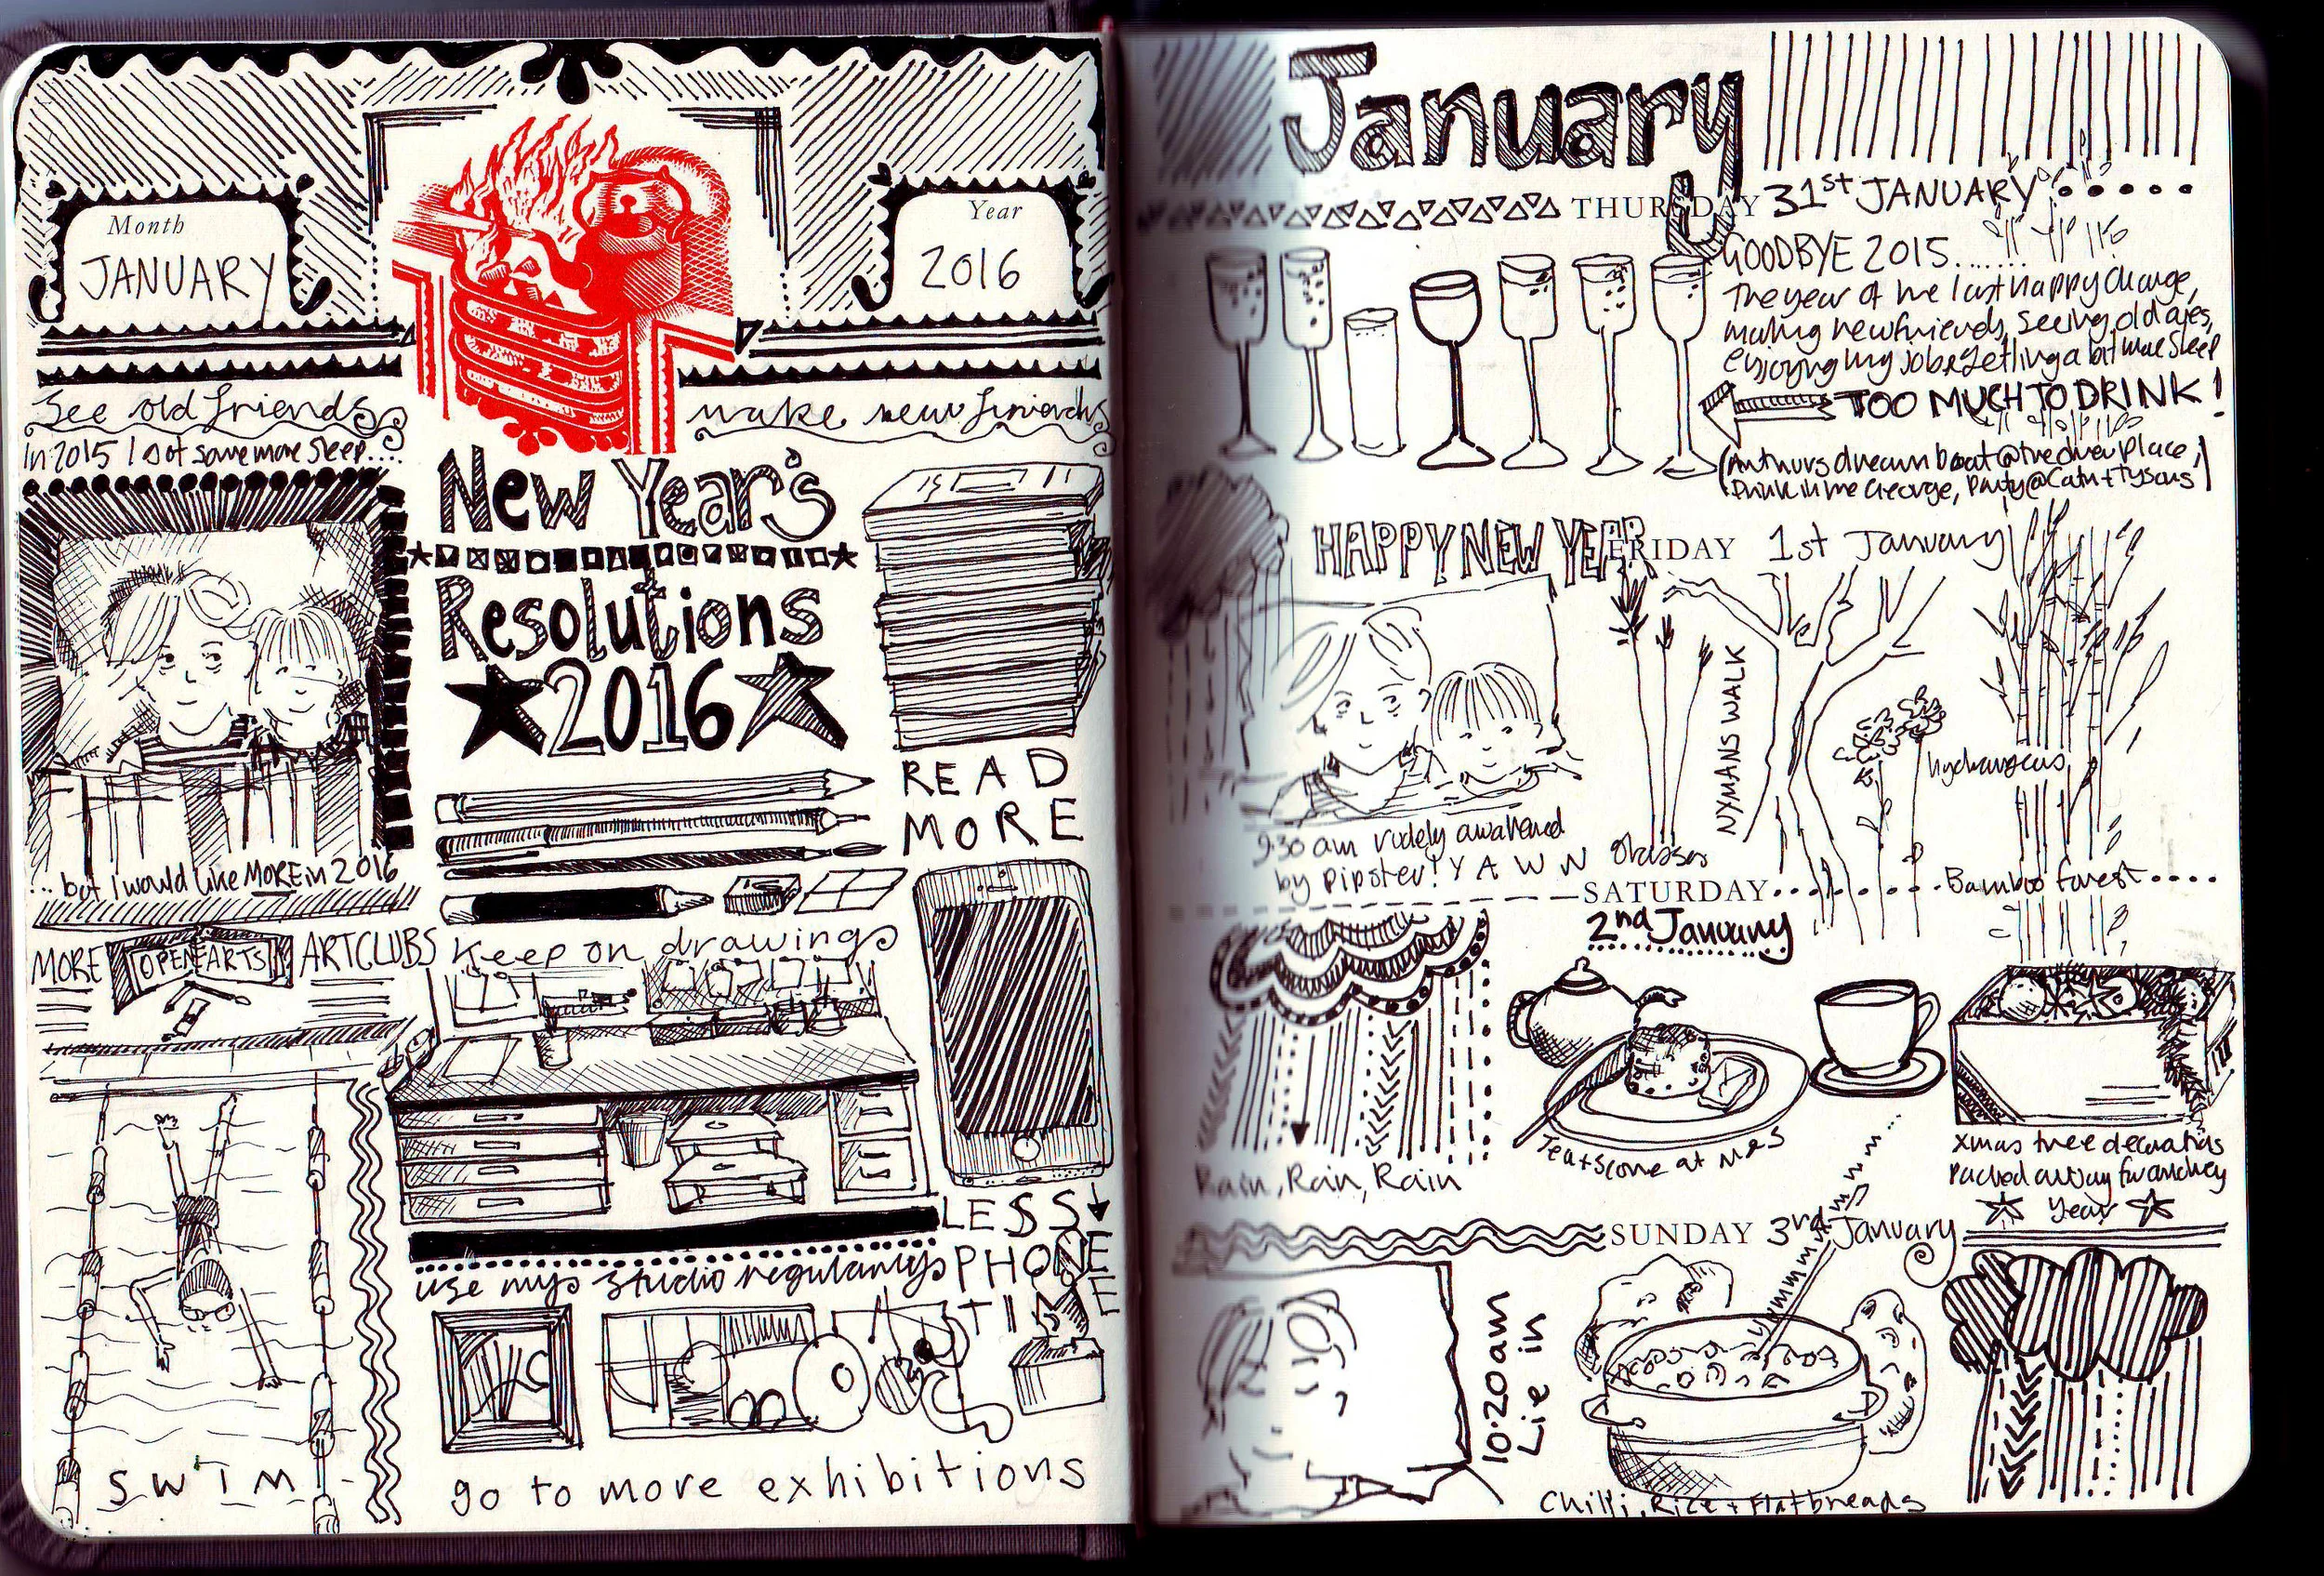 Month
JANUARY
Year
2016
See old friends
make new friends
In 2015 I got some more sleep....
New Year's
Resolutions
2016
READ
MORE
... but I would like MORE in 2016
MORE OPEN ARTS ARTCLUBS
Keep on drawing
LESS
PHONE
TIME
use my studio regularly
SWIM
go to more exhibitions
January
THURSDAY 31st JANUARY
GOODBYE 2015.......
The year of the last happy change,
making new friends, seeing old ones,
enjoying my job & getting a bit more sleep
TOO MUCH TO DRINK!
(Arthurs dream boat @ the place,
Drink in the George, Party @ Cath + Tysons)
HAPPY NEW YEAR
FRIDAY 1st January
NYMANS WALK
hydrangeas
9.30 am rudely awakened
by Pipster! YAWN
Grasses
Bamboo forest
SATURDAY
2nd January
Rain, Rain, Rain
Tea + Scone at M+S
Xmas tree decorations
Packed away for another
Year
SUNDAY 3rd January
10:20am
Lie in
Yummmmmmm...
Chilli, Rice + Flatbreads